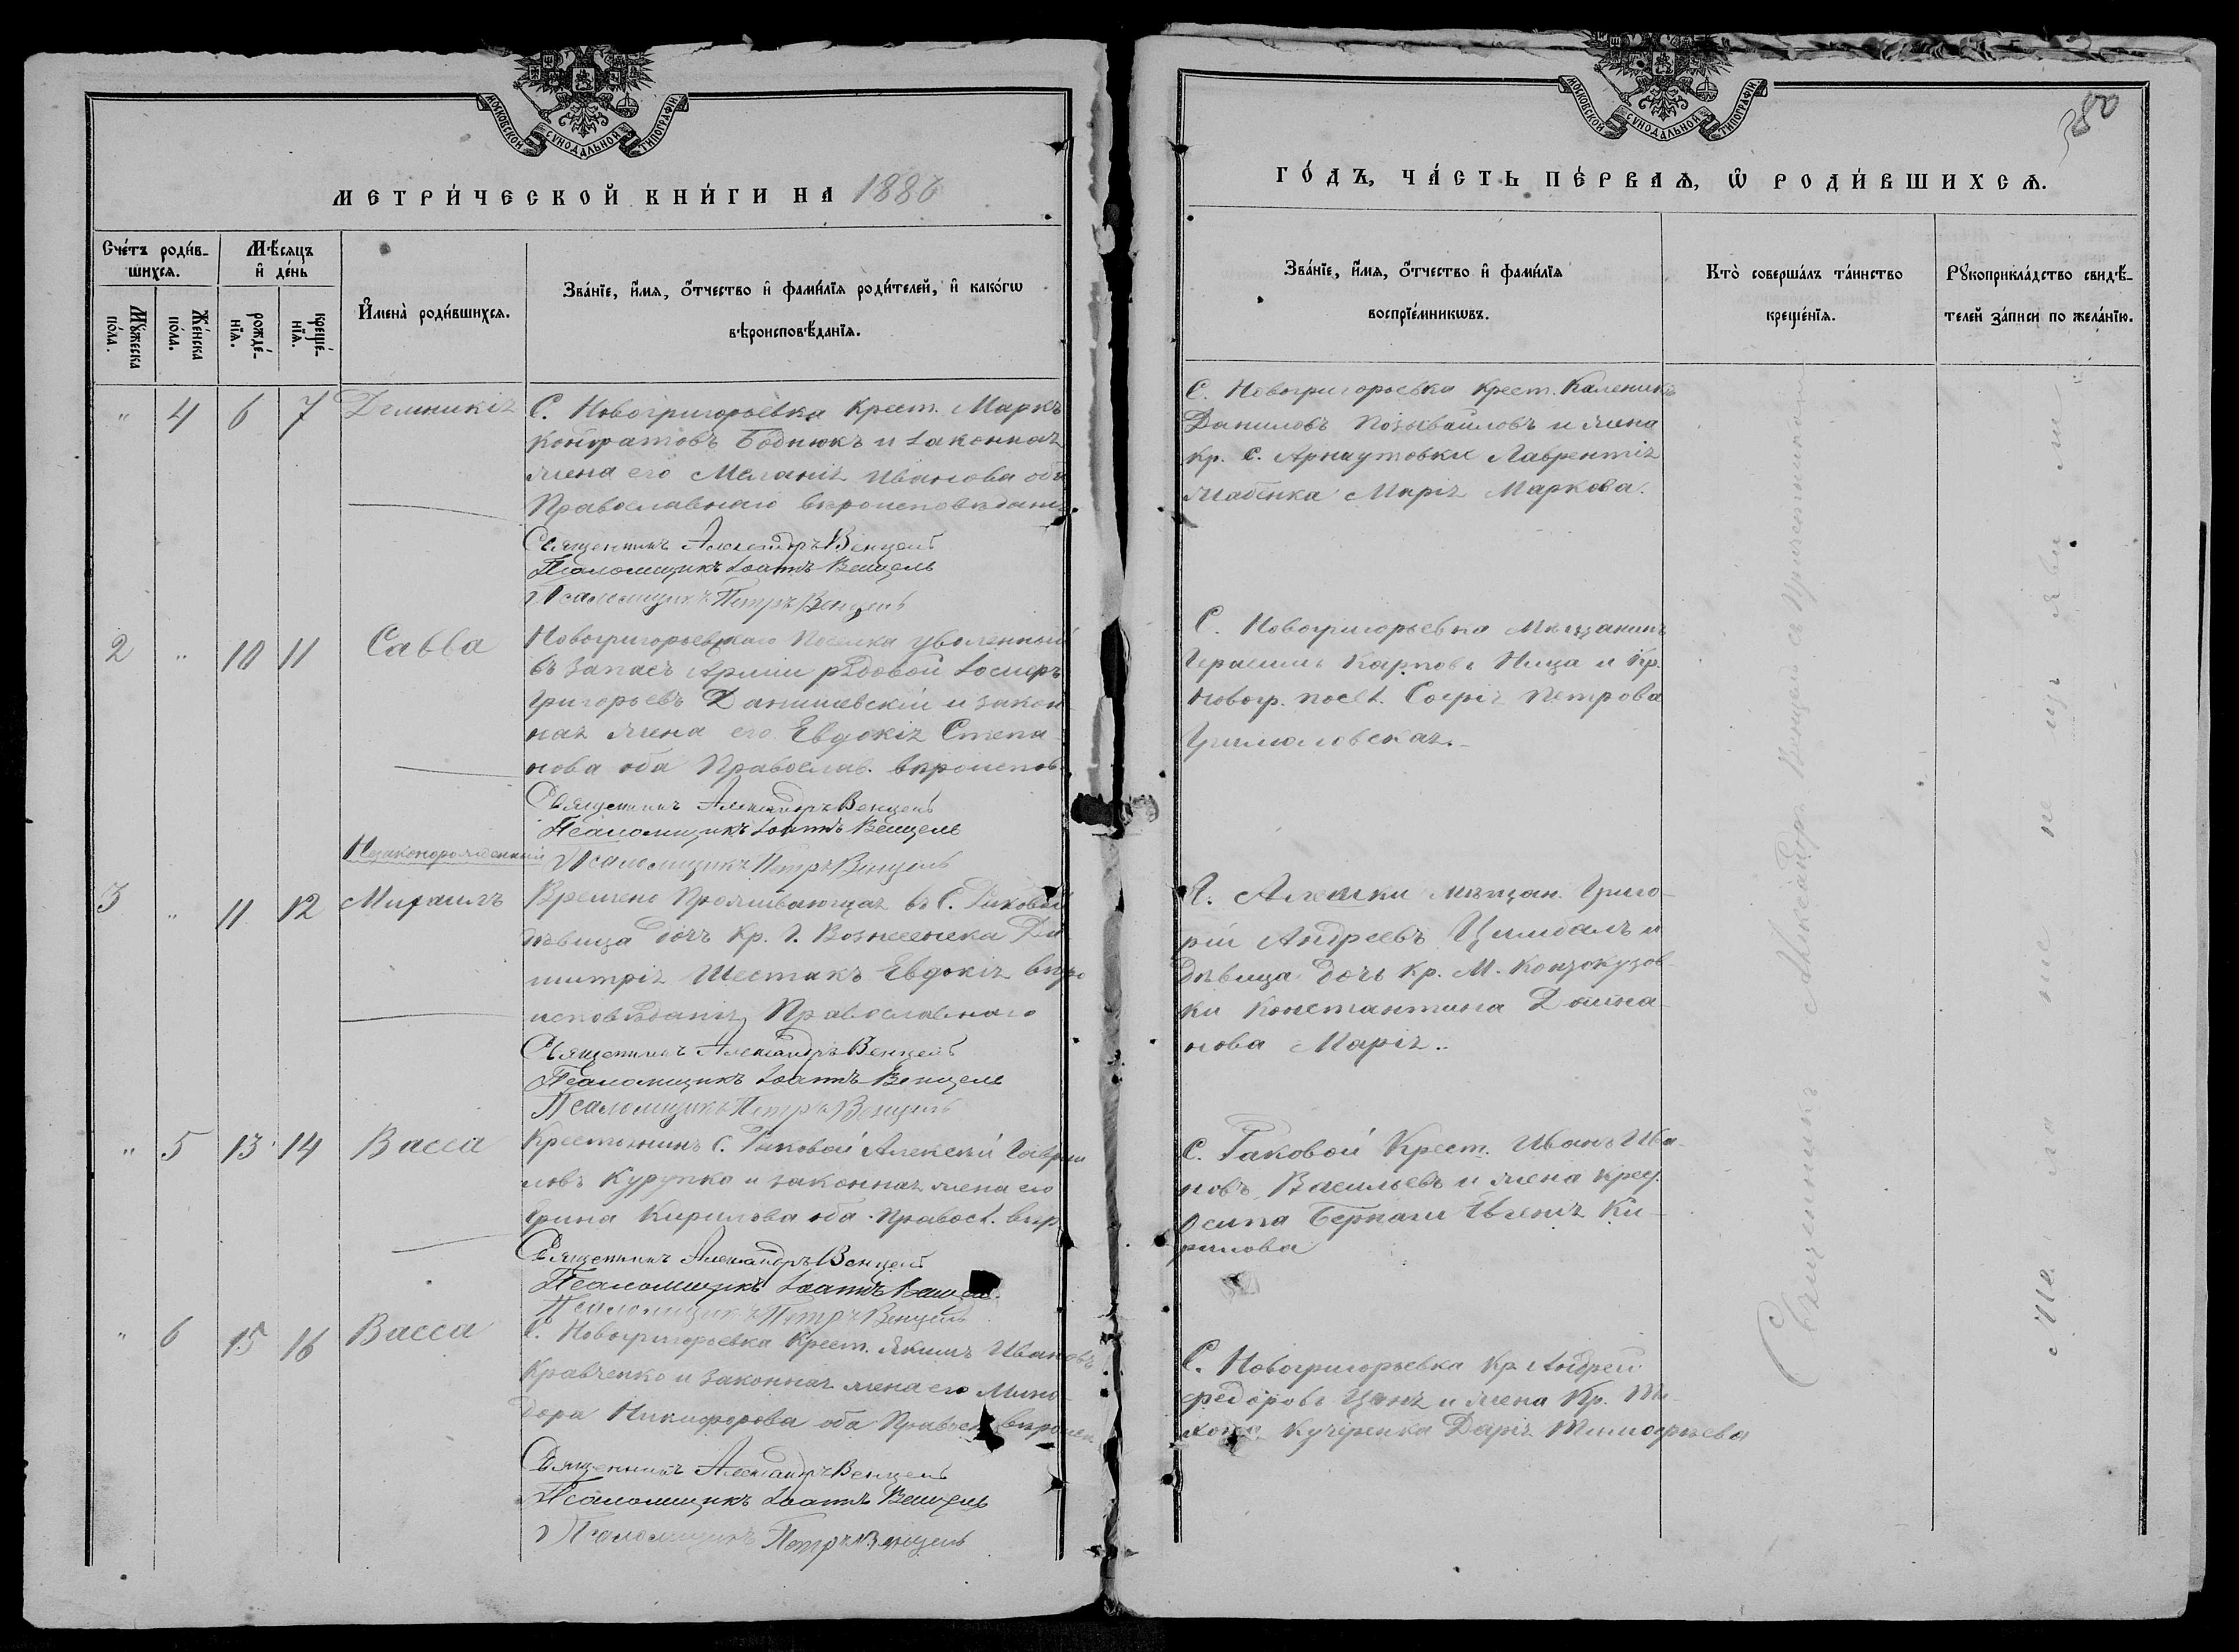 МОСКОВСКОЙ СУНОДАЛЬНОЙ ТИПОГРАФІИ
МЕТРИ́ЧЕСКОЙ КНИ́ГИ НА 1886
Сче́тъ роди́в-
шихся.
Мѣ́сяцъ
и҆ де́нь
Мꙋ́жеска
по́ла.
Же́нска
по́ла.
рожде́-
нїѧ.
креще́-
нїѧ.
И҆мена̀ роди́вшихсѧ.
Зва́нїе, и҆́мѧ, ѻ҆́тчество и҆ фами́лїѧ роди́телей, и҆ како́гѡ
вѣроисповѣ́данїѧ.
" 4 6 7
С. Новогригорьевка Крест. Маркъ
Кондратовъ Боднюкъ и законная
жена его Меланія Иванова оба
Православнаго вѣроисповѣданія
Священникъ Александръ Венцель
Псаломщикъ Іоаннъ Венцель
Псаломщикъ Петръ Венцель
2 " 10 11 Савва
Новогригорьевскаго Поселка уволенный
въ запасъ Арміи рядовой
Григорьевъ Данишевскій и закон
ная жена его Евдокія Степа
нова оба Православ. вѣроиспов.
Священникъ Александръ Венцель
Псаломщикъ Іоаннъ Венцель
Псаломщикъ Петръ Венцель
Незаконорожденный
3 " 11 12 Михаилъ
Времено Проживающая въ С. Раковой
дѣвица дочь Кр. Г. Вознесенска Ди
митрія Шестакъ Евдокія вѣро
исповѣданія Православнаго
Священникъ Александръ Венцель
Псаломщикъ Іоаннъ Венцель
Псаломщикъ Петръ Венцель
" 5 13 14 Васса
Крестьянинъ С. Раковой Алексѣй Гаври
ловъ Курупко и законная жена его
Ірина Кирилова оба Правосл. вѣр
Священникъ Александръ Венцель
Псаломщикъ Іоаннъ Венцель
Псаломщикъ Петръ Венцель
" 6 15 16 Васса
С. Новогригорьевка Крест. Якимъ Ивановъ
Кравченко и законная жена его Мино
дора Никифорова оба Правосл. вѣроисп
Священникъ Александръ Венцель
Псаломщикъ Іоаннъ Венцель
Псаломщикъ Петръ Венцель
МОСКОВСКОЙ СУНОДАЛЬНОЙ ТИПОГРАФІИ
ГО́ДЪ, ЧА́СТЬ ПЕ́РВАѦ, Ѡ҆ РОДИ́ВШИХСѦ.
Зва́нїе, и҆́мѧ, ѻ҆́тчество и҆ фами́лїѧ
воспрїе́мникѡвъ.
Кто̀ соверша́лъ та́инство
креще́нїѧ.
Рꙋкоприкла́дство свидѣ́-
телей за́писи по жела́нїю.
С. Новогригорьевка Крест. Каленикъ
Даниловъ и жена
кр. С. Арнаутовки Лаврентія
Марія Маркова.
С. Новогригорьевка Мѣщанинъ
Герасимъ Карповъ Ница и Кр.
Новогр. посел. Софія Петрова
Г. Алешки мѣщан. Григо-
рій Андреевъ Цимбалъ и
Дѣвица дочь Кр. М. Концокузов
ки Константина Домна-
нова Марія.
С. Раковой Крест. Иванъ Ива-
новъ Васильевъ и жена Крес.
Осипа Евгенія Ки-
рилова
С. Новогригорьевка Кр. Андрей
Федоровъ и жена Кр. Ти-
хона Кучеренка Дарія Тимофѣева
Священникъ Александръ Венцель съ Причетниками